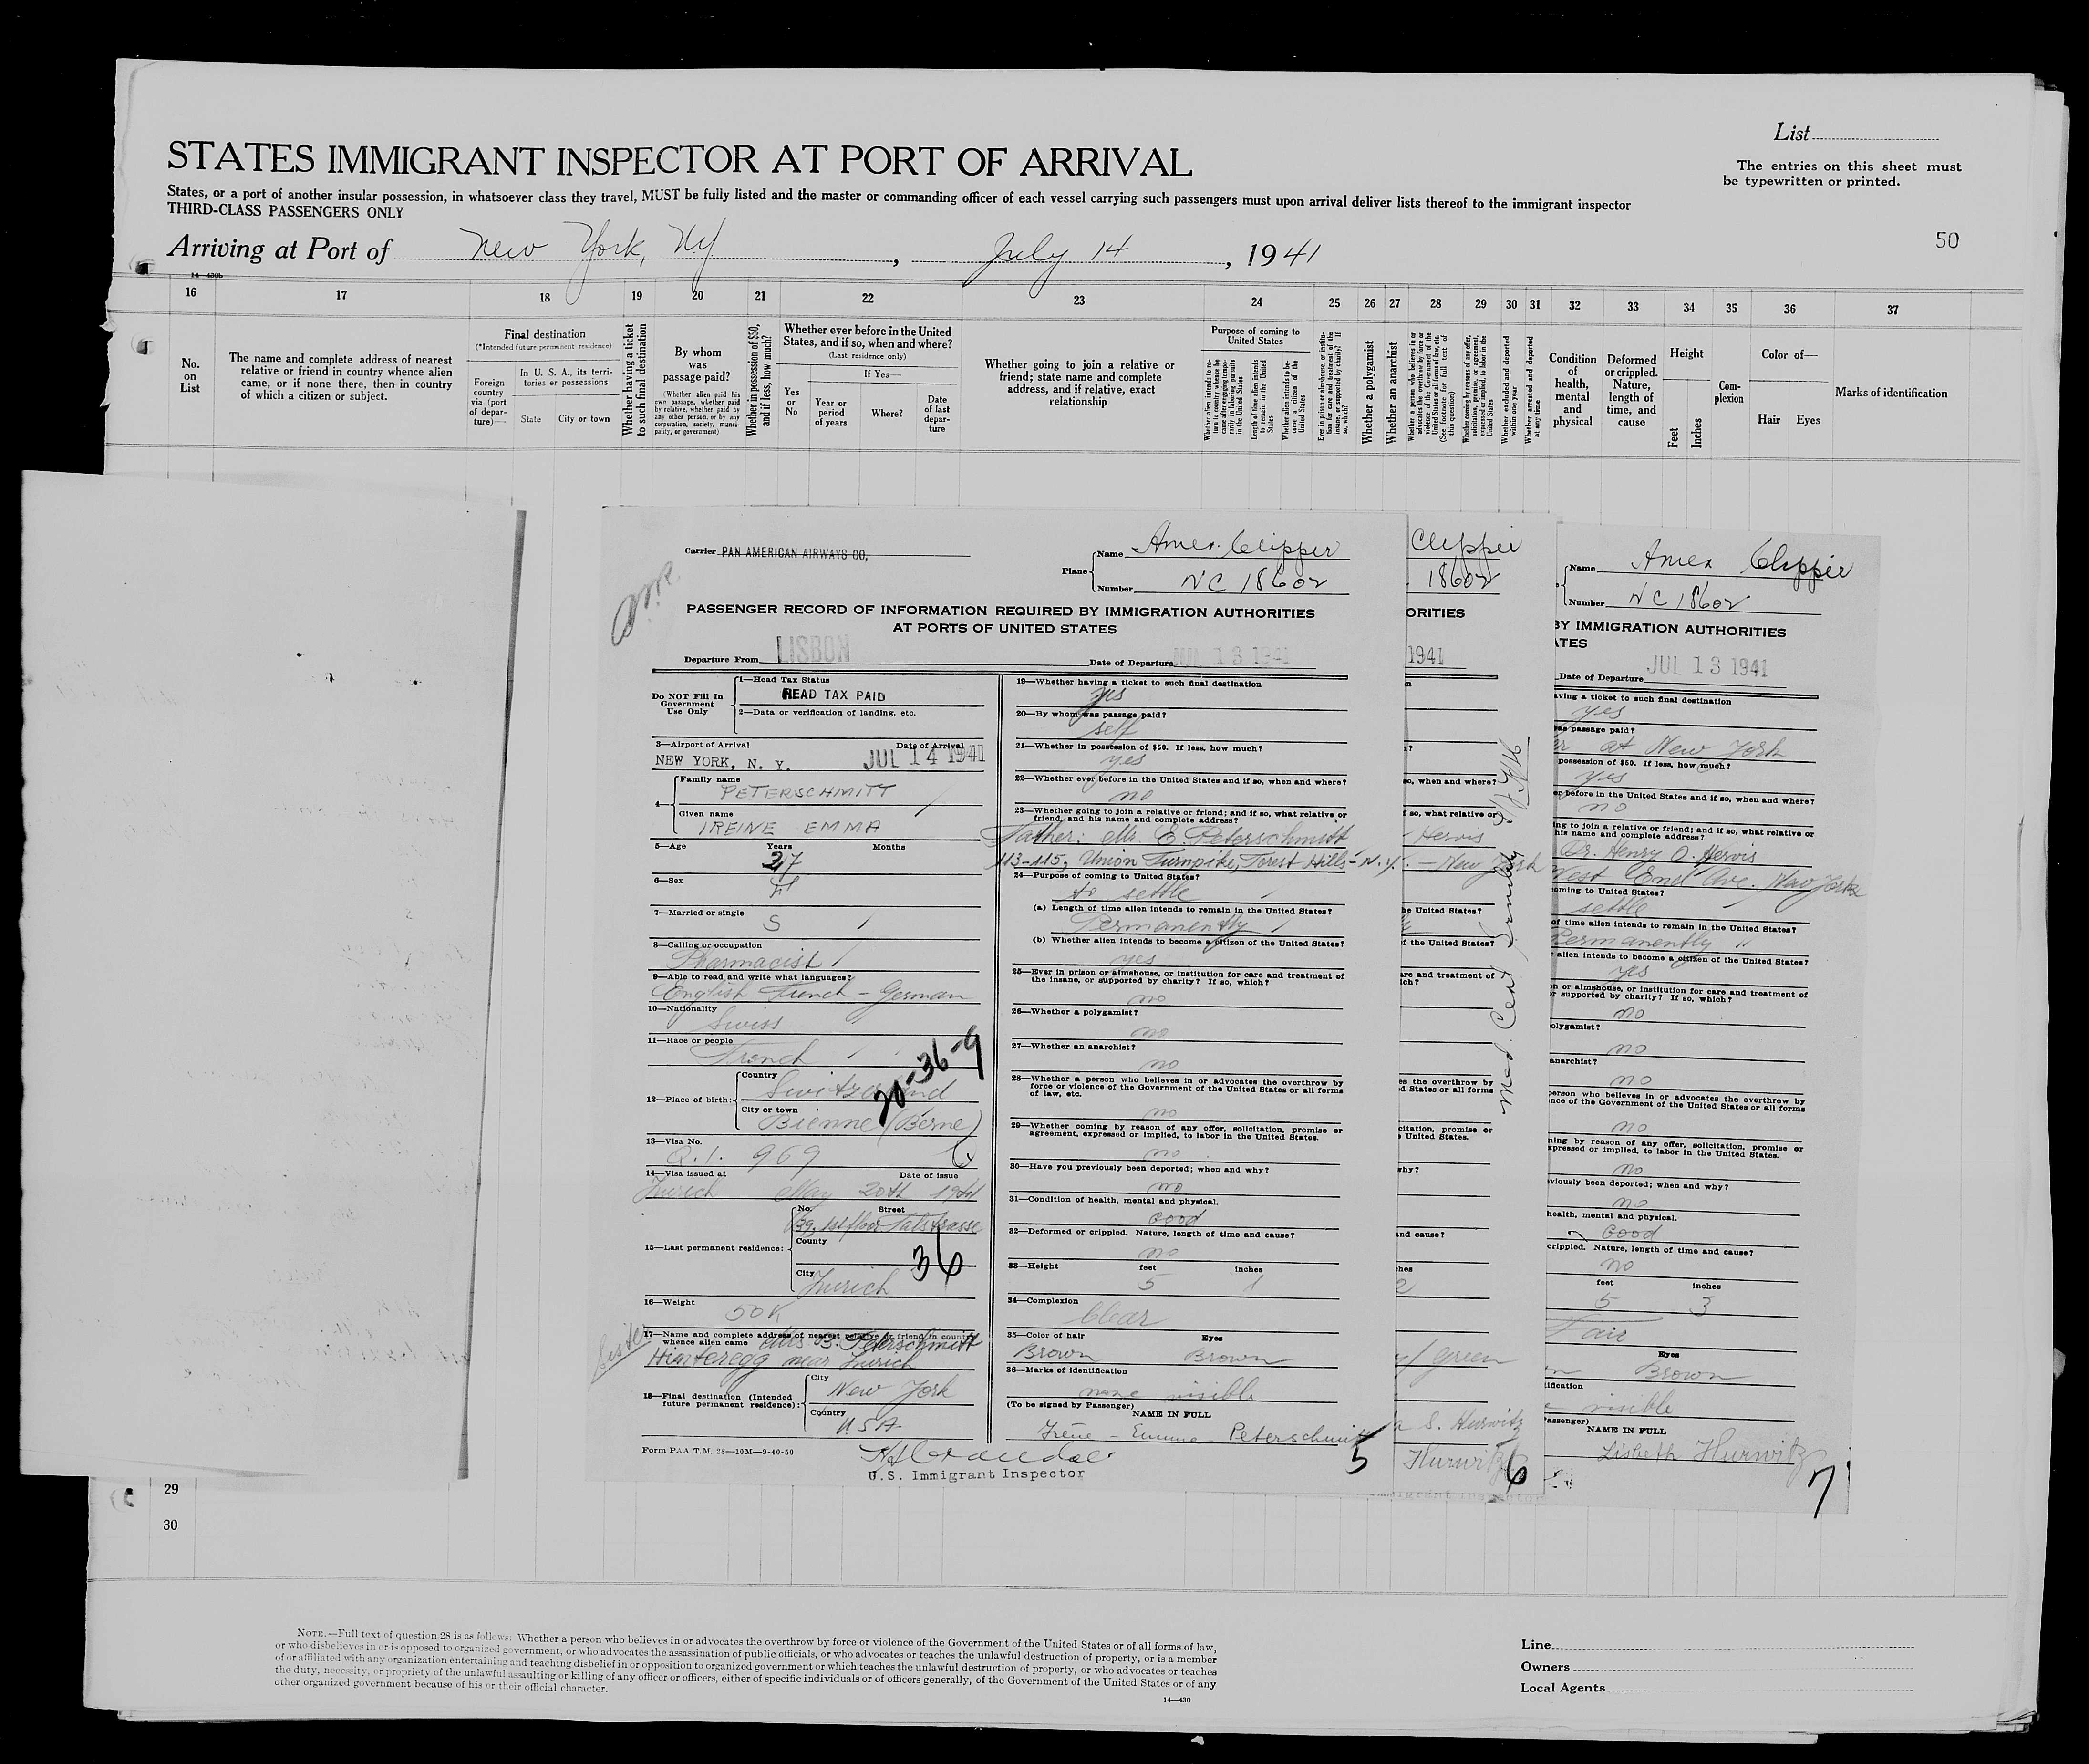 List
STATES IMMIGRANT INSPECTOR AT PORT OF ARRIVAL
The entries on this sheet must
be typewritten or printed.
States, or a port of another insular possession, in whatsoever class they travel, MUST be fully listed and the master or commanding officer of each vessel carrying such passengers must upon arrival deliver lists thereof to the immigrant inspector
THIRD-CLASS PASSENGERS ONLY
Arriving at Port of New York, NY, July 14, 1941
50
14-430b
16 17 18 19 20 21 22 23 24 25 26 27 28 29 30 31 32 33 34 35 36 37
No. on List
The name and complete address of nearest
relative or friend in country whence alien
came, or if none there, then in country
of which a citizen or subject.
Final destination
(*Intended future permanent residence)
Foreign country via (port of departure)—
In U. S. A., its territories or possessions
State City or town
Whether having a ticket to such final destination
By whom was passage paid?
(Whether alien paid his own passage, whether paid by relative, whether paid by any other person, or by any corporation, society, municipality, or government)
Whether in possession of $50, and if less, how much?
Whether ever before in the United
States, and if so, when and where?
(Last residence only)
If Yes—
Yes or No
Year or period of years
Where?
Date of last departure
Whether going to join a relative or
friend; state name and complete
address, and if relative, exact
relationship
Purpose of coming to
United States
Whether a polygamist
Whether an anarchist
Whether excluded and deported within one year
Whether arrested and deported at any time
Condition of health, mental and physical
Deformed or crippled. Nature, length of time, and cause
Height
Feet Inches
Complexion
Color of—
Hair Eyes
Marks of identification
Carrier PAN AMERICAN AIRWAYS CO.
Plane
Name Amer. Clipper
Number NC 18602
PASSENGER RECORD OF INFORMATION REQUIRED BY IMMIGRATION AUTHORITIES
AT PORTS OF UNITED STATES
Departure From LISBON
Date of Departure JUL 13 1941
Do NOT Fill In
Government
Use Only
1—Head Tax Status
HEAD TAX PAID
2—Data or verification of landing, etc.
3—Airport of Arrival Date of Arrival
NEW YORK, N. Y. JUL 14 1941
4—
Family name
PETERSCHMITT
Given name
IREINE EMMA
5—Age Years Months
27
6—Sex
7—Married or single
S
8—Calling or occupation
Pharmacist
9—Able to read and write what languages?
English French - German
10—Nationality
Swiss
11—Race or people
French
12—Place of birth:
Country
Switzerland
City or town
Bienne (Berne)
70-36-9
13—Visa No.
Q.I. 969
14—Visa issued at Date of issue
Zurich May 20th 1941
15—Last permanent residence:
No. Street
39, 1st floor Talstrasse
County
36
City
Zurich
16—Weight
50K
17—Name and complete address of nearest relative or friend in country
whence alien came Mrs B. Peterschmitt
Sister
Hinteregg near Zurich
18—Final destination (Intended
future permanent residence):
City
New York
Country
USA.
Form PAA T.M. 28—10M—9-40-50
U.S. Immigrant Inspector
19—Whether having a ticket to such final destination
yes
20—By whom was passage paid?
self
21—Whether in possession of $50. If less, how much?
yes
22—Whether ever before in the United States and if so, when and where?
no
23—Whether going to join a relative or friend; and if so, what relative or
friend, and his name and complete address?
Father: Mr. E. Peterschmitt
113-115, Union Turnpike, Forest Hills - N.Y.
24—Purpose of coming to United States?
to settle
(a) Length of time alien intends to remain in the United States?
Permanently
(b) Whether alien intends to become a citizen of the United States?
yes
25—Ever in prison or almshouse, or institution for care and treatment of
the insane, or supported by charity? If so, which?
no
26—Whether a polygamist?
no
27—Whether an anarchist?
no
28—Whether a person who believes in or advocates the overthrow by
force or violence of the Government of the United States or all forms
of law, etc.
no
29—Whether coming by reason of any offer, solicitation, promise or
agreement, expressed or implied, to labor in the United States.
no
30—Have you previously been deported; when and why?
no
31—Condition of health, mental and physical.
Good
32—Deformed or crippled. Nature, length of time and cause?
no
33—Height feet inches
5 1
34—Complexion
Clear
35—Color of hair Eyes
Brown Brown
36—Marks of identification
none visible
(To be signed by Passenger)
NAME IN FULL
Irène - Emma - Peterschmitt
5
Clipper
18602
ORITIES
1941
so, when and where?
f so, what relative or
Hervis
- New York
he United States?
f the United States?
are and treatment of
ich?
es the overthrow by
d States or all forms
citation, promise or
United States.
why?
nd cause?
hes
green
a S. Hurwitz
Hurwitz
6
Med. Cert.
Name Amer Clipper
Number NC 18602
BY IMMIGRATION AUTHORITIES
ATES
JUL 13 1941
Date of Departure
aving a ticket to such final destination
yes
as passage paid?
at New York
possession of $50. If less, how much?
yes
er before in the United States and if so, when and where?
no
ng to join a relative or friend; and if so, what relative or
his name and complete address?
Dr. Henry O. Hervis
West End Ave. New York
oming to United States?
settle
of time alien intends to remain in the United States?
Permanently
alien intends to become a citizen of the United States?
yes
n or almshouse, or institution for care and treatment of
r supported by charity? If so, which?
no
olygamist?
no
anarchist?
no
person who believes in or advocates the overthrow by
nce of the Government of the United States or all forms
no
ning by reason of any offer, solicitation, promise or
xpressed or implied, to labor in the United States.
no
viously been deported; when and why?
no
health, mental and physical.
Good
crippled. Nature, length of time and cause?
no
feet inches
5 3
Fair
Eyes
Brown
ification
visible
assenger)
NAME IN FULL
Lisbeth Hurwitz
7
29
30
NOTE.—Full text of question 28 is as follows: Whether a person who believes in or advocates the overthrow by force or violence of the Government of the United States or of all forms of law,
or who disbelieves in or is opposed to organized government, or who advocates the assassination of public officials, or who advocates or teaches the unlawful destruction of property, or is a member
of or affiliated with any organization entertaining and teaching disbelief in or opposition to organized government or which teaches the unlawful destruction of property, or who advocates or teaches
the duty, necessity, or propriety of the unlawful assaulting or killing of any officer or officers, either of specific individuals or of officers generally, of the Government of the United States or of any
other organized government because of his or their official character.
14—430
Line
Owners
Local Agents